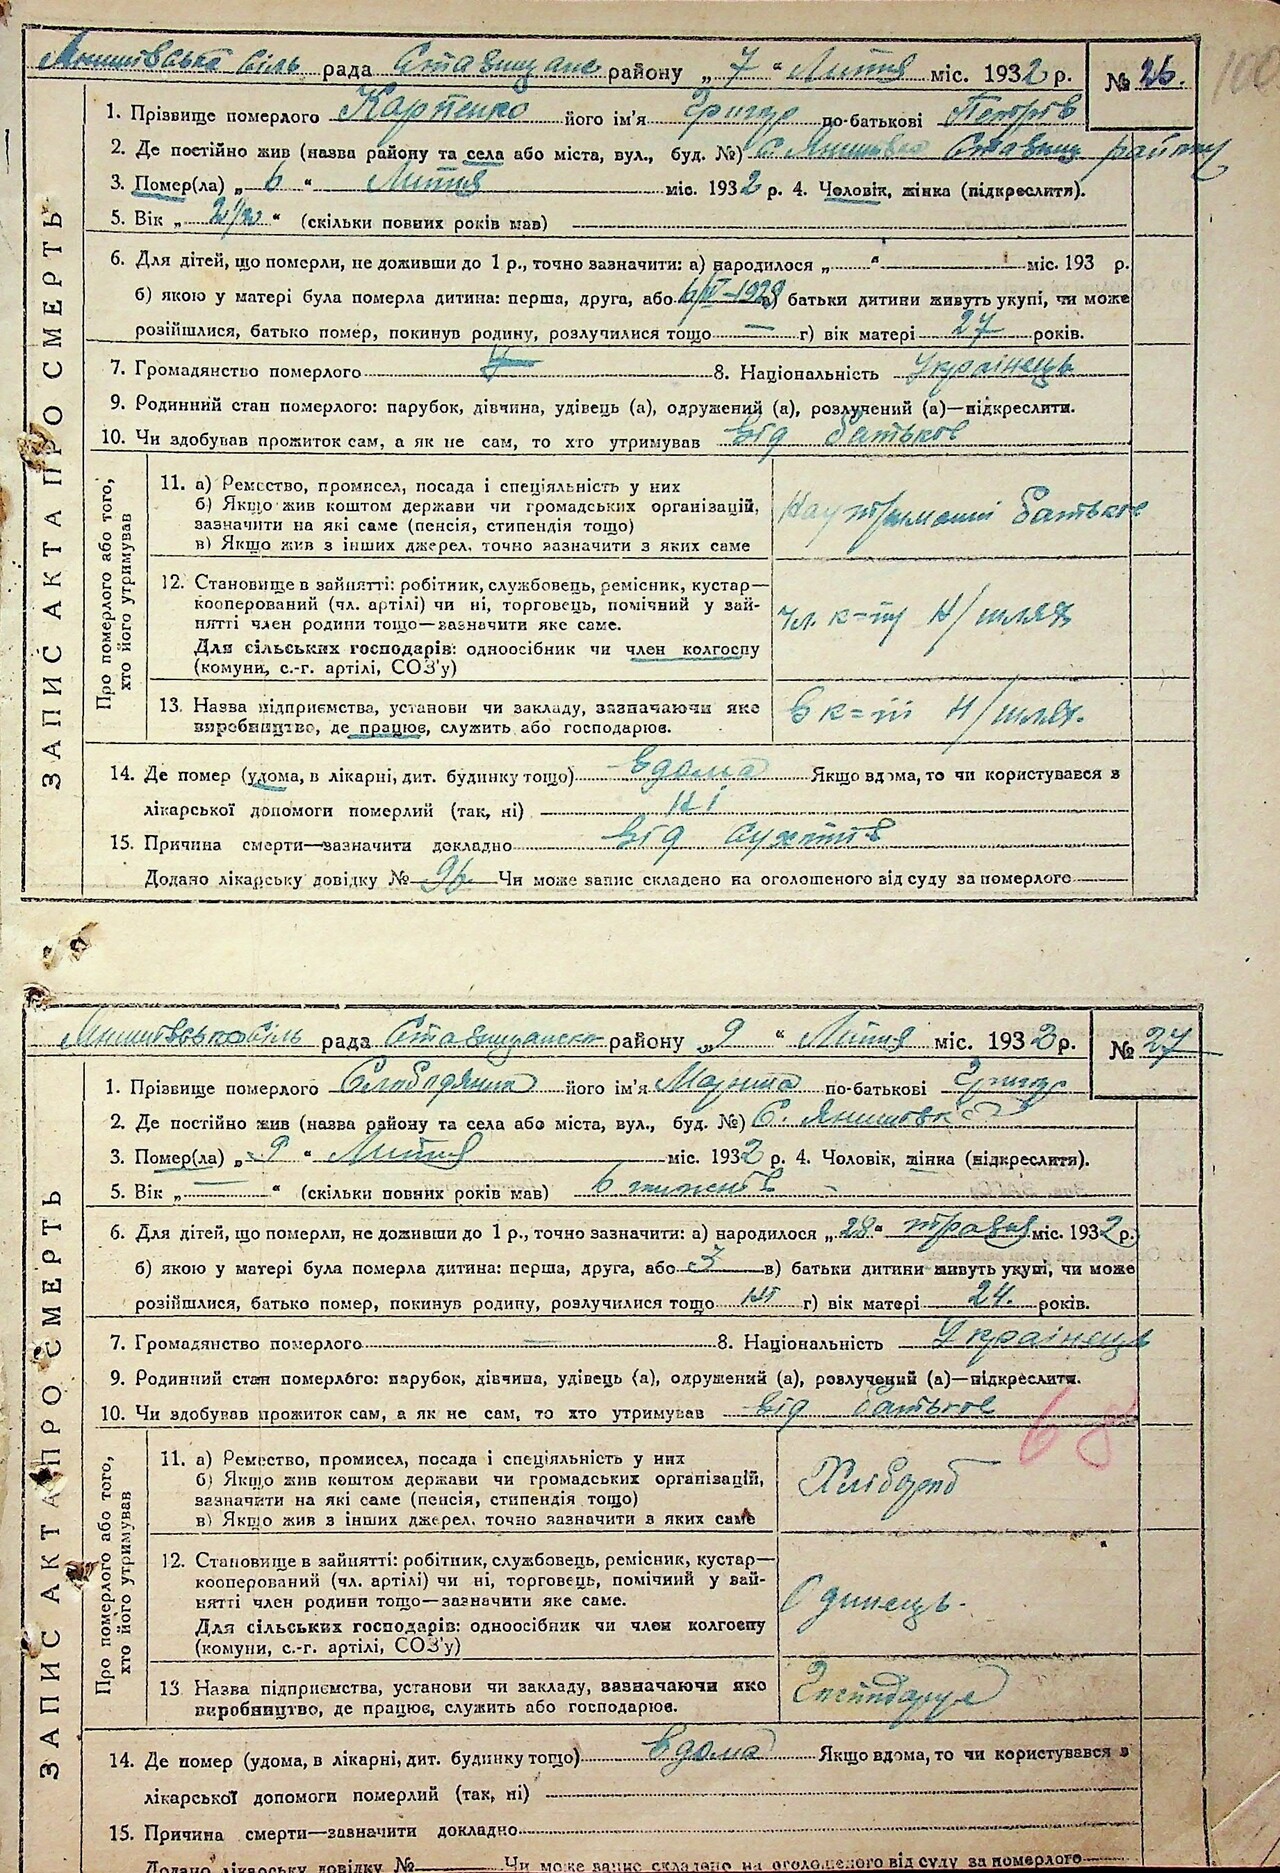 рада району „ 7 “ Липня міс. 1932 р. № 26.
1. Прізвище померлого Карпенко його ім'я Григор по-батькові Петрів
2. Де постійно жив (назва району та села або міста, вул., буд. №) С Янишівка Ставищ району
3. Помер(ла) „ 6 “ Липня міс. 1932 р. 4. Чоловік, жінка (підкреслити).
5. Вік „ “ (скільки повних років мав)
6. Для дітей, що померли, не доживши до 1 р., точно зазначити: а) народилося „ “ міс. 193 р.
б) якою у матері була померла дитина: перша, друга, або в) батьки дитини живуть укупі, чи може
розійшлися, батько помер, покинув родину, розлучилися тощо — г) вік матері 27 років.
7. Громадянство померлого 8. Національність Українець
9. Родинний стан померлого: парубок, дівчина, удівець (а), одружений (а), розлучений (а)—підкреслити.
10. Чи здобував прожиток сам, а як не сам, то хто утримував від батьков
ЗАПИС АКТА ПРО СМЕРТЬ
Про померлого або того,
хто його утримував
11. а) Ремество, промисел, посада і спеціяльність у них
б) Якщо жив коштом держави чи громадських організацій,
зазначити на які саме (пенсія, стипендія тощо)
в) Якщо жив з інших джерел, точно зазначити з яких саме
На утриманні батьков
12. Становище в зайнятті: робітник, службовець, ремісник, кустар—
кооперований (чл. артілі) чи ні, торговець, помічний у зай-
нятті член родини тощо—зазначити яке саме.
Для сільських господарів: одноосібник чи член колгоспу
(комуни, с.-г. артілі, СОЗ'у)
чл. к=пу Н/шлях
13. Назва підприємства, установи чи закладу, зазначаючи яке
виробництво, де працює, служить або господарює.
в к=пі Н/шлях.
14. Де помер (удома, в лікарні, дит. будинку тощо) вдома Якщо вдома, то чи користувався з
лікарської допомоги померлий (так, ні) ні
15. Причина смерти—зазначити докладно від сухотів
Додано лікарську довідку № 96. Чи може запис складено на оголошеного від суду за померлого
рада району „ 9 “ Липня міс. 1932 р. № 27
1. Прізвище померлого його ім'я по-батькові Григор
2. Де постійно жив (назва району та села або міста, вул., буд. №) С. Янишівка
3. Помер(ла) „ 9 “ Липня міс. 1932 р. 4. Чоловік, жінка (підкреслити).
5. Вік „ — “ (скільки повних років мав) 6 тижнів
6. Для дітей, що померли, не доживши до 1 р., точно зазначити: а) народилося „ 28 “ травня міс. 1932 р.
б) якою у матері була померла дитина: перша, друга, або 3 в) батьки дитини живуть укупі, чи може
розійшлися, батько помер, покинув родину, розлучилися тощо ні г) вік матері 24. років.
7. Громадянство померлого — 8. Національність Українець
9. Родинний стан померлого: парубок, дівчина, удівець (а), одружений (а), розлучений (а)—підкреслити.
10. Чи здобував прожиток сам, а як не сам, то хто утримував від батьков
68
ЗАПИС АКТА ПРО СМЕРТЬ
Про померлого або того,
хто його утримував
11. а) Ремество, промисел, посада і спеціяльність у них
б) Якщо жив коштом держави чи громадських організацій,
зазначити на які саме (пенсія, стипендія тощо)
в) Якщо жив з інших джерел, точно зазначити з яких саме
Хлібороб
12. Становище в зайнятті: робітник, службовець, ремісник, кустар—
кооперований (чл. артілі) чи ні, торговець, помічний у зай-
нятті член родини тощо—зазначити яке саме.
Для сільських господарів: одноосібник чи член колгоспу
(комуни, с.-г. артілі, СОЗ'у)
Одинець.
13 Назва підприємства, установи чи закладу, зазначаючи яке
виробництво, де працює, служить або господарює.
Господарує
14. Де помер (удома, в лікарні, дит. будинку тощо) вдома Якщо вдома, то чи користувався з
лікарської допомоги померлий (так, ні)
15. Причина смерти—зазначити докладно
Додано лікарську довідку № Чи може запис складено на оголошеного від суду за померлого